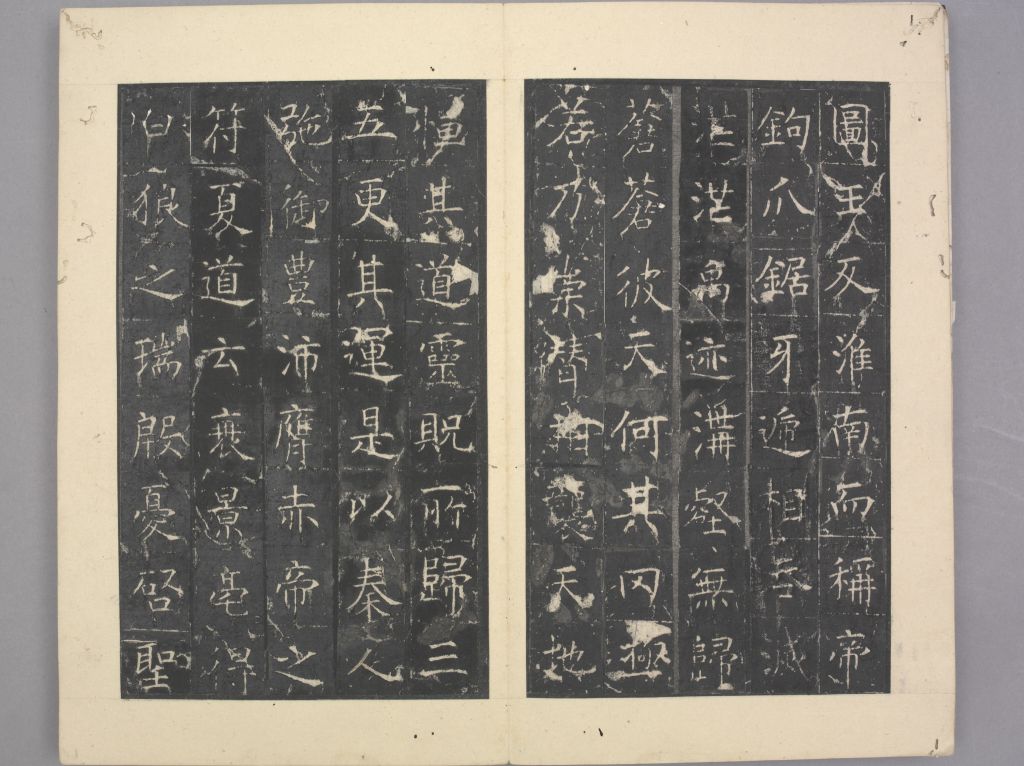 圖王淮南而稱帝
鉤爪鋸牙遞相吞滅
茫茫禹迹溝壑無歸
蒼蒼彼天何其罔極
若乃崇替相襲天地
恒其道靈貺所歸三
五更其運是以秦人
弛御豊沛膺赤帝之
符夏道云衰景亳得
白狼之瑞殷憂啓聖